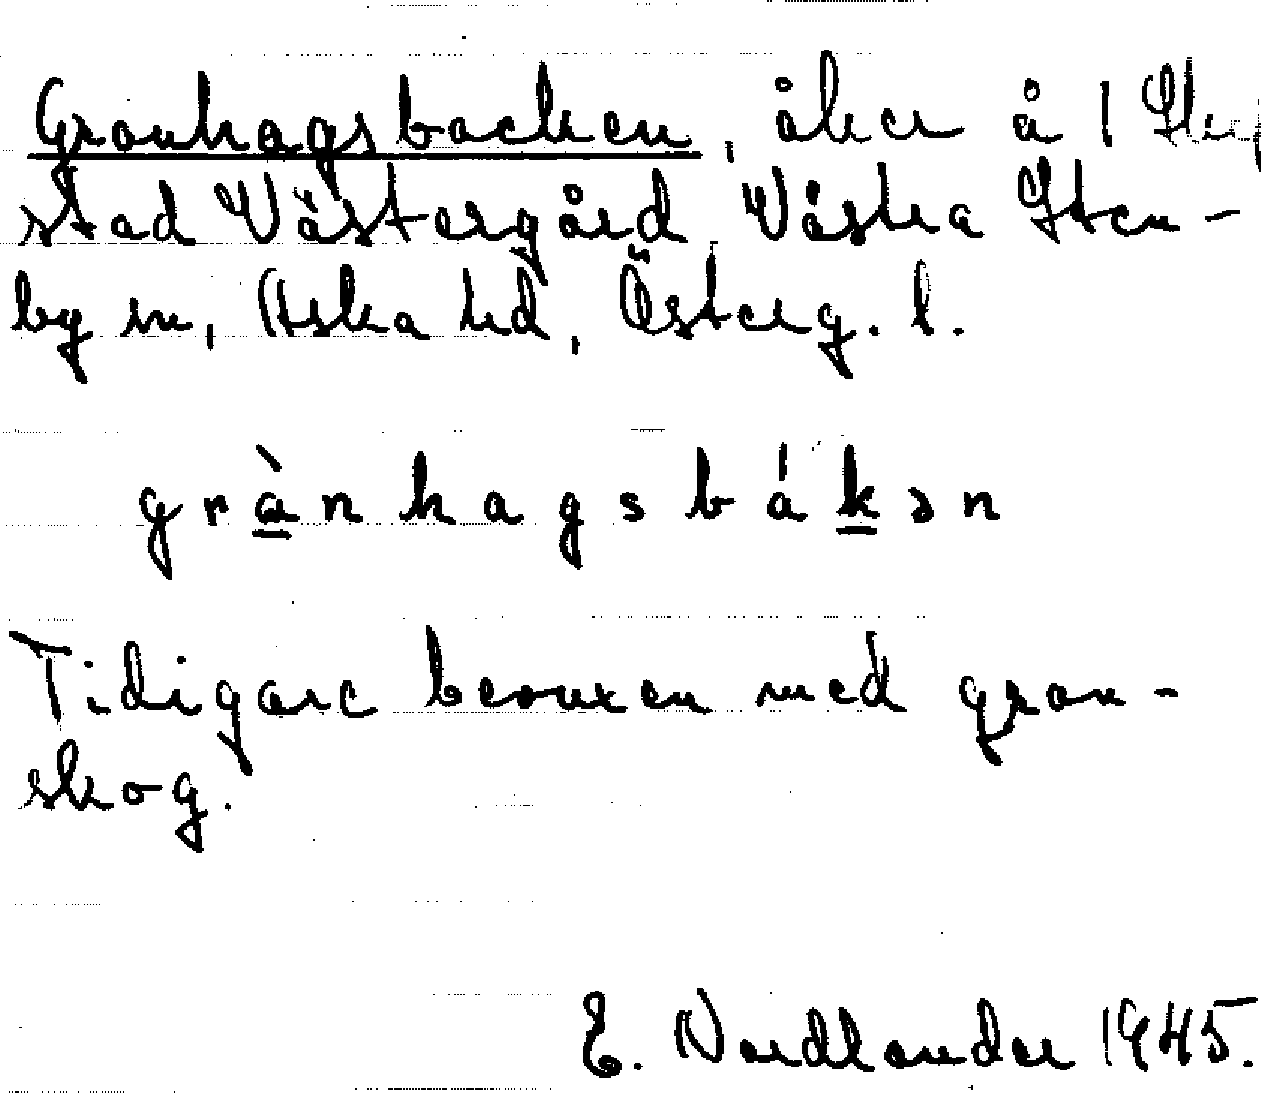 Granhagsbacken, åker å 1 Skog
stad Västergård, Västra Sten-
by sn, Aska hd, Österg. l.
grànhagsbákən
Tidigare bevuxen med gran-
skog.
E. Nordlander 1945.